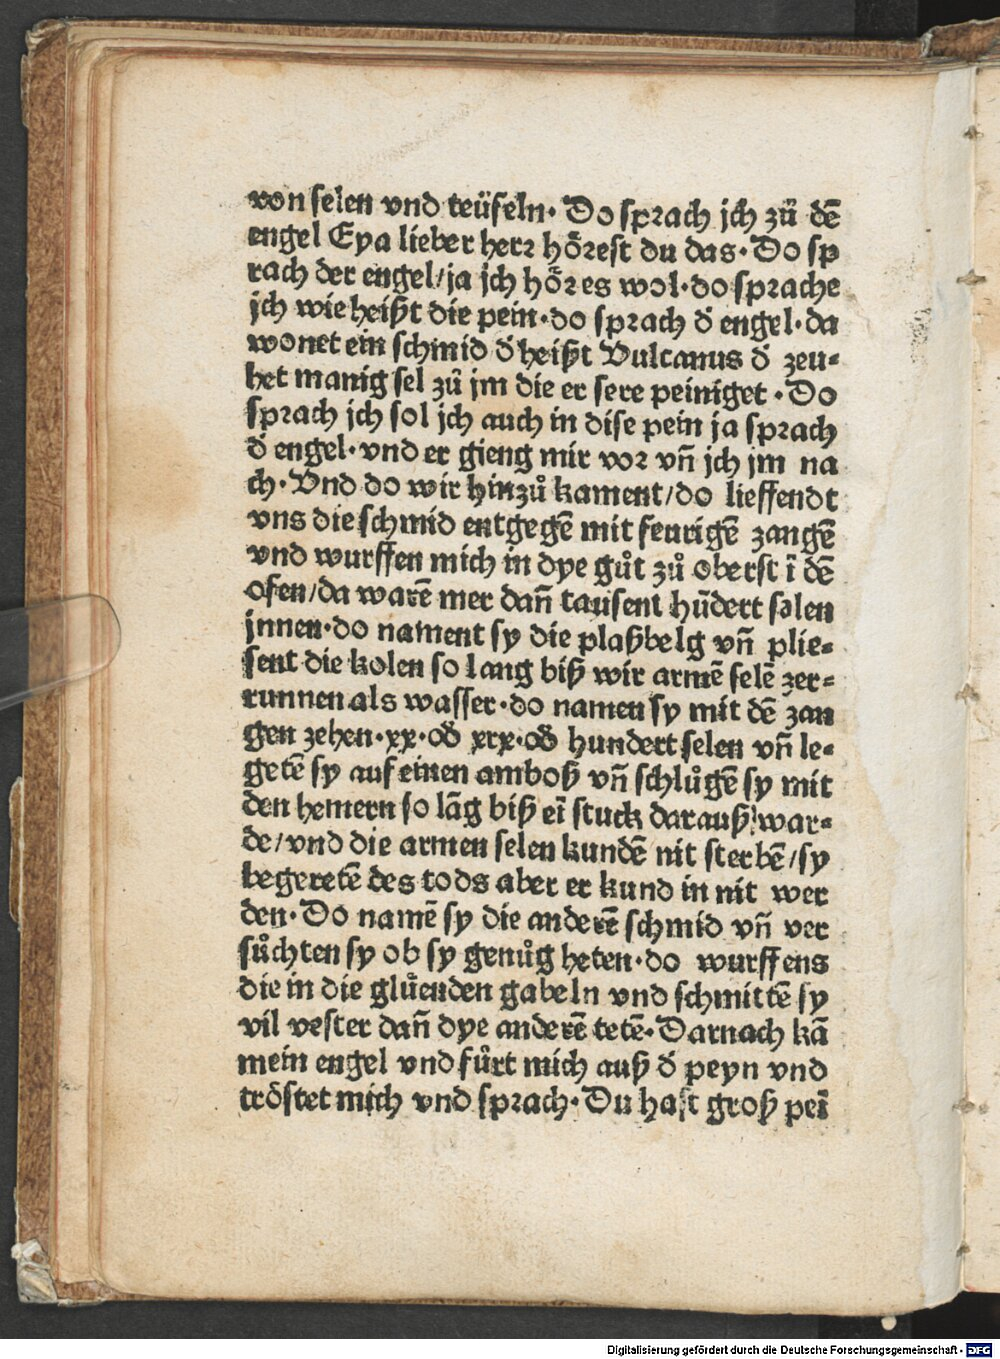 von selen vnd teüfeln· Do sprach jch zů dē
engel Eya lieber herr hörest du das· Do sp
rach der engel/ja jch höres wol·do sprache
jch wie heißt die pein·do sprach đ engel·da
wonet ein schmid đ heißt Vulcanus đ zeu⸗
het manig sel zů jm die er sere peiniget · Do
sprach jch sol jch auch in dise pein ja sprach
đ engel·vnd er gieng mir vor vñ jch jm na
ch· Vnd do wir hinzů kament/do lieffendt
vns die schmid entgegē mit feurigē zangē
vnd wurffen mich in dye gůt zů oberst ī dē
ofen/da warē mer dañ tausent hūdert selen
jnnen·do nament sy die plaßbelg vñ plie⸗
sent die kolen so lang biß wir armē selē zer⸗
runnen als wasser·do namen sy mit dē zan
gen zehen·xx·ođ xxx·ođ hundert selen vñ le⸗
getē sy auf einen amboß vñ schlůgē sy mit
den hemern so lāg biß eī stuck darauß war⸗
de/vnd die armen selen kundē nit sterbē/sy
begeretē des tods aber er kund in nit wer
den· Do namē sy die anderē schmid vñ ver
sůchten sy ob sy genůg heten·do wurffens
die in die glüenden gabeln vnd schmittē sy
vil vester dañ dye anderē tetē· Darnach kā
mein engel vnd fůrt mich auß đ peyn vnd
tröstet mich vnd sprach· Du hast groß peī
Digitalisierung gefördert durch die Deutsche Forschungsgemeinschaft - DFG